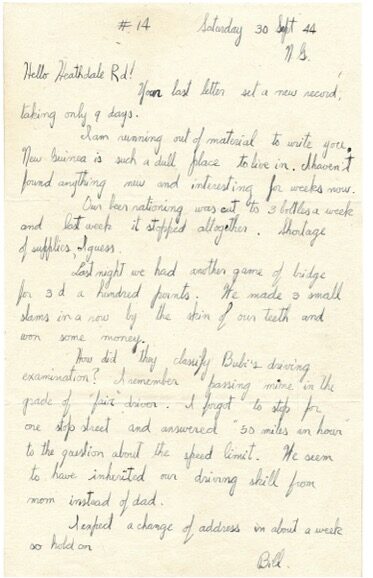 #14 Saturday 30 Sept 44
N G.
Hello Heathdale Rd!
Your last letter set a new record,
taking only 9 days.
I am running out of material to write you.
New Guinea is such a dull place to live in. I haven't
found anything new and interesting for weeks now.
Our beer rationing was cut to 3 bottles a week
and last week it stopped altogether. Shortage
of supplies, I guess.
Last night we had another game of bridge
for 3 d a hundred points. We made 3 small
slams in a row by the skin of our teeth and
won some money.
How did they classify Bubi's driving
examination? I remember passing mine in the
grade of "fair" driver. I forgot to stop for
one stop street and answered "35 miles in hour"
to the question about the speed limit. We seem
to have inherited our driving skill from
mom instead of dad.
I expect a change of address in about a week
so hold on
Bill.